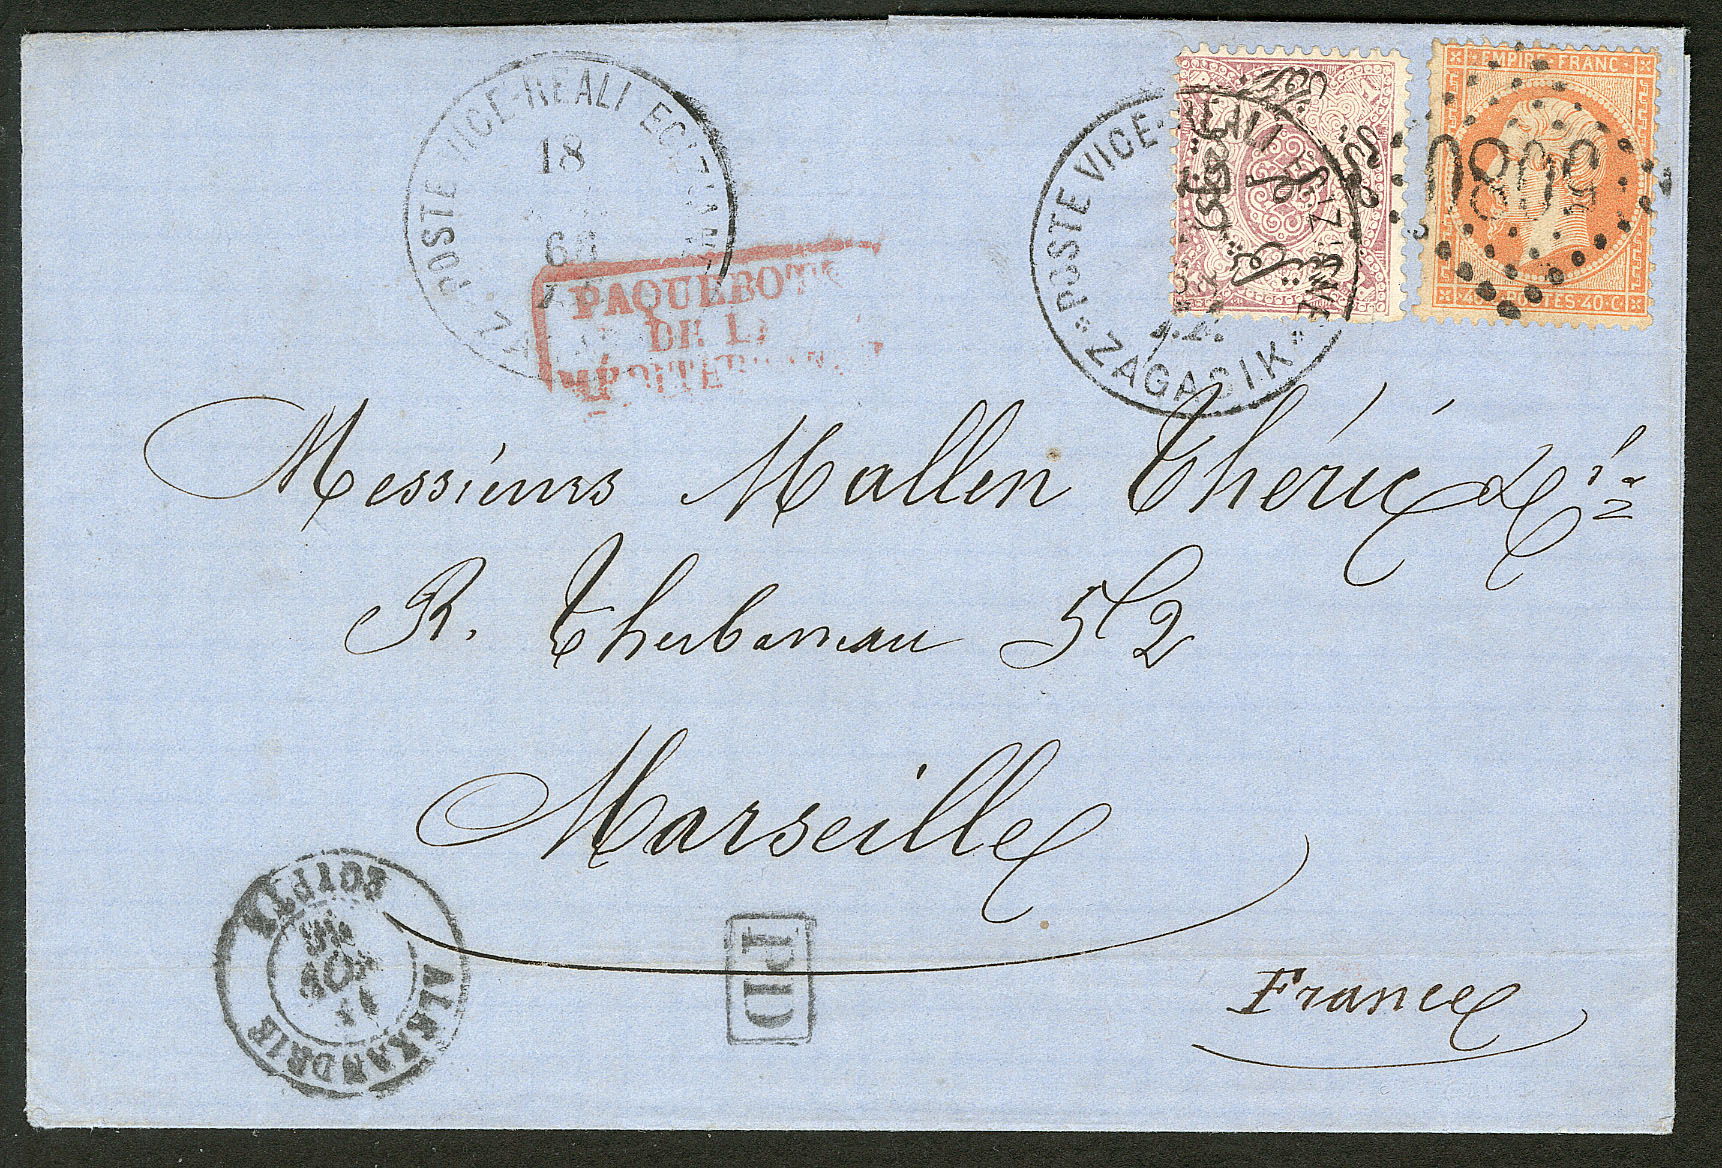 POSTE VICE-REALI EGIZIANE
18
POSTE VICE-REALI EGIZIANE
ZAGASIK
EMPIRE FRANC
5080
40 C POSTES 40 C
PAQUEBOTS
DE LA
MÉDITERRANÉE
Messieurs Mallen Théric & Cie
R. Thubaneau 52
Marseille
France
ALEXANDRIE
EGYPTE
NOV
PD